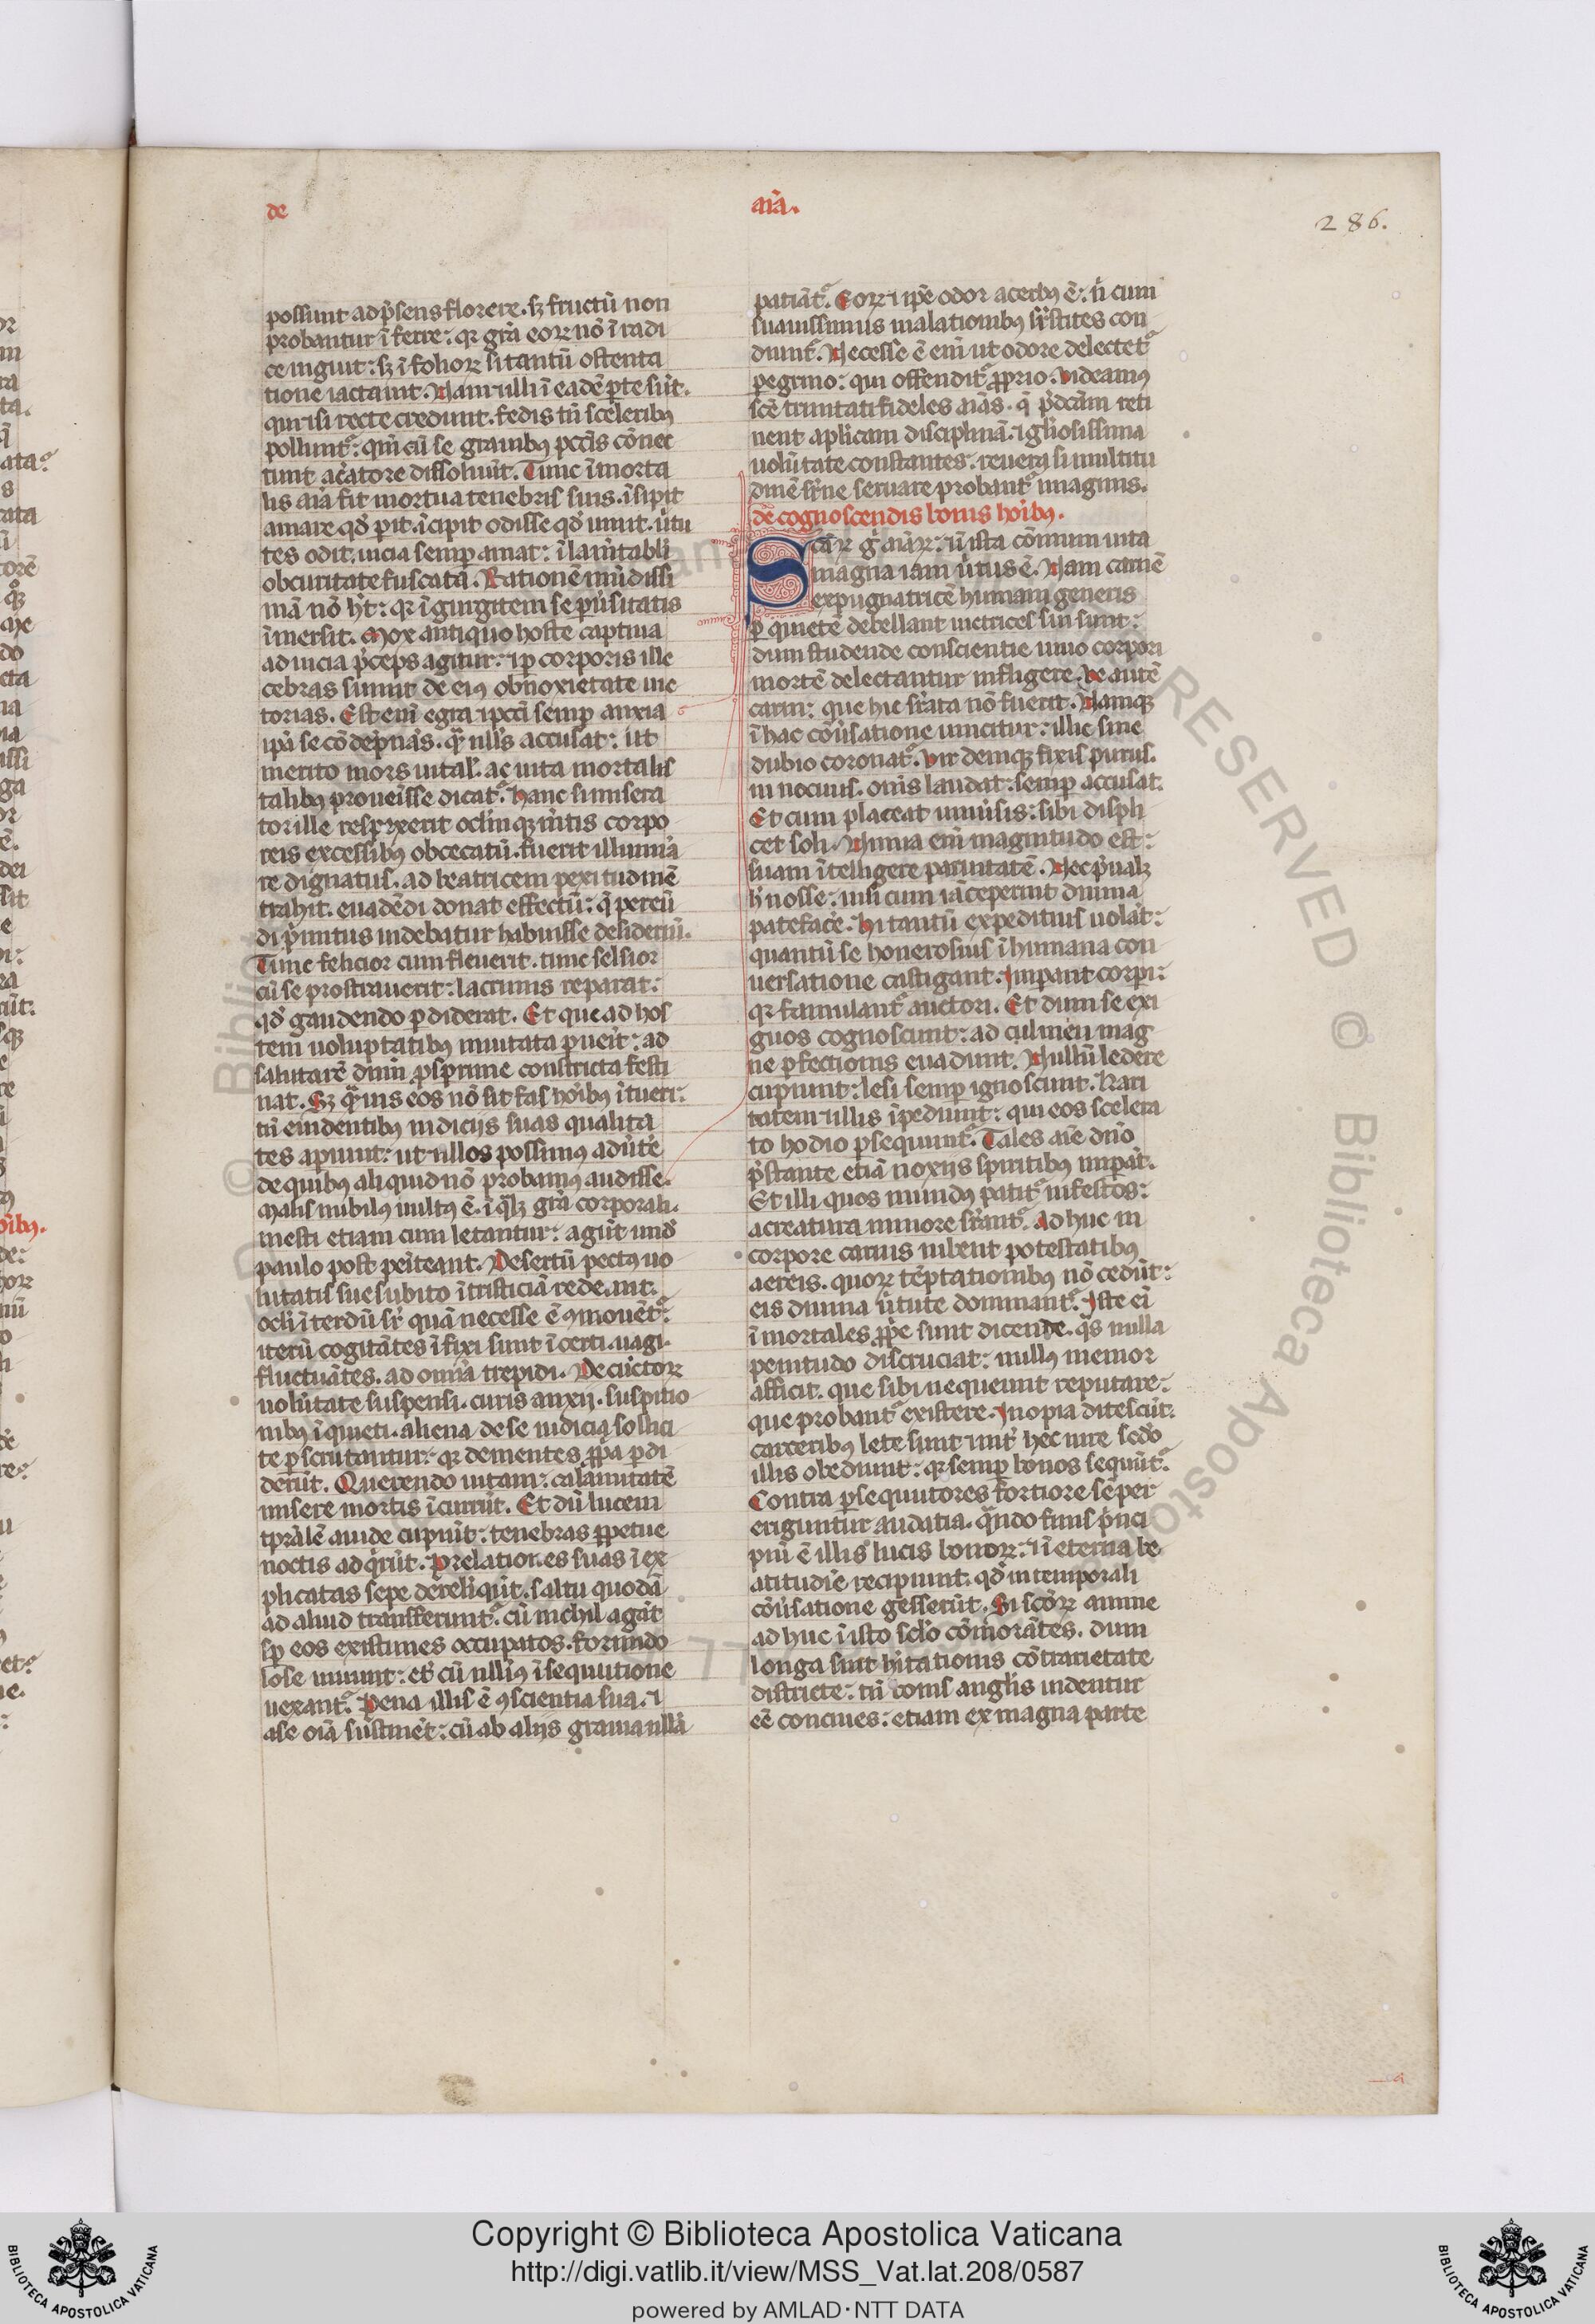 de
aīa.
286.
possunt ad p̄sens florere. sꝫ fructū non
probantur īferre: qꝛ grā eoꝝ nō ī radi
ce uiguit: sꝫ ī folioꝝ si tantū ostenta
tione iactant. Nam ⁊ illi ī eadē ꝑte sūt.
qui ⁊ si recte credunt. fedis tn̄ sceleribꝰ
polluunt᷑: qm̄ cū se grauibꝰ pcc̄is cōnec
tunt ac̄atore dissoluūt. Tunc īmorta
lis aīa fit mortua tenebris suis. īcipit
amare qd̓ ꝑit. īcipit odisse qd̓ uiuit. ūtu
tes odit. uicia semꝑ amat: ī lam̄tabli
obcuritate fuscata. Rationē mūdissi
mā nō hꝫt: qꝛ ī gurgitem se ꝑūsitatis
īmersit. Mox antiquo hoste captiua
ad uicia p̄ceps agitur: ⁊ ꝑ corporis ille
cebras sumit de eiꝰ obnoxietate uic
torias. Est enī egra ⁊ pcc̄i semꝑ anxia
ip̄a se cōdepnās. q̄ nllꝰs accusat: ut
merito mors uitalꝭ. ac uita mortalis
talibꝰ prouenīsse dicat᷑. Hanc si misera
tor ille respexerit oclīmqꝫ mētis corpo
reis excessibꝰ obcecatū. fuerit illumīa
re dignatus. ad beatricem pexitudinē
trahit. euadēdi donat effectū: q̄ pereū
di p̄mitus uidebatur habuisse desideriū.
Tunc felicior cum fleuerit. tunc selsior
cū se prostrauerit: lacrimis reparat:
qd̓ gaudendo ꝑdiderat. Et que ad hos
tem uoluptatibꝰ inuitata ꝑueīt: ad
salutarē dn̄m ꝓsprime constricta festi
nat. Sꝫ q̄uis eos nō sit fas hoībꝰ ītueri:
tn̄ euidentibꝰ iudicijs suas qualita
tes apiunt: ut illos possimꝰ adūte
de quibꝰ aliquid nō probamꝰ audisse.
Malis nubilꝰ uultꝰ ē. ī q̄lꝫ grā corporali.
mesti etiam cum letantur: agūt unde
paulo post peniteant. Desertū pectꝰ uo
luntatis sue subito ī tristiciā rede.unt.
ocli īterdū sr̄ quā necesse ē ꝯmouēt᷑.
iterū cogitātes īfixi sunt īcerti. uagi.
fluctuātes. ad omīa trepidi. De cūctoꝝ
uolūtate suspensi. curis anxij. suspitio
nibꝰ īquieti. aliena de se iudicia sollici
te ꝑscrutantur: qꝛ dementes ꝓpa ꝑdi
derūt. Querendo uitam: calamitatē
misere mortis īcurrūt. Et dū lucem
tpralē auide cupiūt: tenebras ꝑpetue
noctis adq̄rūt. Prelationes suas ī ex
plicatas sepe dereliqūt. saltu quodā
ad aliud transferunt᷑. cū nichil agāt
sꝑ eos existimes occupatos. formido
lose uiuunt: et̓ cū nlliꝰ īsequutione
uexant᷑. Pena illis ē ꝯscientia sua. ⁊
a se oīa sustinēt: cū ab alijs grauia nlla
patiāt᷑. Eoꝝ ⁊ ipē odor acerbꝰ ē: n̄ cum
suauissimis malationibꝰ sr̄stites con
diunt᷑. Necesse ē enī ut odore delectet᷑
peg̓rino: qui offendit᷑ ꝓprio. Uideamꝰ
sc̄e trinitati fideles aīas. q̄ p̄dcām reti
nent aplicam disciplinā. ⁊ gliosissima
uolūtate constantes. reuera si multitu
dinē sr̄ne seruare probant᷑ imaginis.
de cognoscendis bonis hoībꝰ.
Scāꝝ g̓ aīaꝝ: ū ista cōmum uita
magna iam ūtus ē. Nam carnē
expugnatricē humani generis
ꝑ quietē debellant uictrices sui sunt:
dum studende conscientie uiuo corpori
mortē delectantur infligere. Ve autē
carni: que hic sr̄ata nō fuerit. Namqꝫ
ī hac cōūsatione uincitur: illic sine
dubio coronat᷑. Vir demqꝫ fixis purus.
innocuus. om̄s laudat: semꝑ accusat.
Et cum placeat uniūsis: sibi displi
cet soli. Nimia enī magnitudo est:
suam ītelligere paruitatē. Nec p̄ualꝫ
h̄ nosse: nisi cum iā ceperint diuina
patefacē. Hi tantū expeditius uolāt:
quantū se honerosius ī humana con
uersatione castigant. Imꝑant corpi:
qꝛ famulant᷑ auctori. Et dum se exi
guos cognoscunt: ad culmen mag
ne ꝑfectionis euadunt. Nullū ledere
cupiunt: lesi semꝑ ignoscunt. Kari
tatem illis īpediunt: qui eos scelera
to hodio ꝑsequunt᷑. Tales aīe dn̄o
p̄stante etiā noxijs spiritibꝰ imꝑāt.
Et illi quos mundꝰ patit᷑ infestos:
a creatura minore sr̄ant᷑. Ad huc in
corpore carnis iubent potestatibꝰ
aereis. quoꝝ tēptationibꝰ nō cedūt:
eis diuina ūtute dominant᷑. Iste eī
īmortales ꝓpe sunt dicende. q̄s nulla
penitudo discruciat: nullꝰ memor
afficit. que sibi nequeunt reputare:
que probant᷑ existere. Inopia ditescūt:
carceribꝰ lete sunt ⁊ nūt̓ hec iure sedo
illis obediunt: qꝛ semꝑ bonos sequūt᷑.
Contra ꝑsequutores fortiore semper
eriguntur audatia. q̄ndo finis p̄nci
piū ē illis lucis bonoꝝ: ⁊ ī eterna be
atitudīe recipiunt. qd̓ in temporali
cōūsatione gesserūt. Hi sc̄oꝝ anime
ad huc ī isto sclo cōmorātes. dum
longa sint hītationis cōtrarietate
districte: tn̄ bonis anglis uidentur
eē conciues: etiam ex magna parte
a
Copyright © Biblioteca Apostolica Vaticana
http://digi.vatlib.it/view/MSS_Vat.lat.208/0587
powered by AMLAD·NTT DATA
BIBLIOTECA APOSTOLICA VATICANA
BIBLIOTECA APOSTOLICA VATICANA